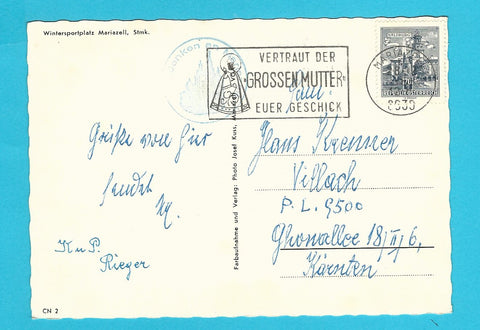 Wintersportplatz Mariazell, Stmk.
VERTRAUT DER
"GROSSEN MUTTER"
EUER GESCHICK
MARIAZELL
8630
REPUBLIK ÖSTERREICH
Grüße von hier
sendet
K u P.
Rieger
CN 2
Farbaufnahme und Verlag: Photo Josef Kuss, Mariazell
Fam.
Hans Kremner
Villach
P. L. 9500
18/II/6,
Kärnten